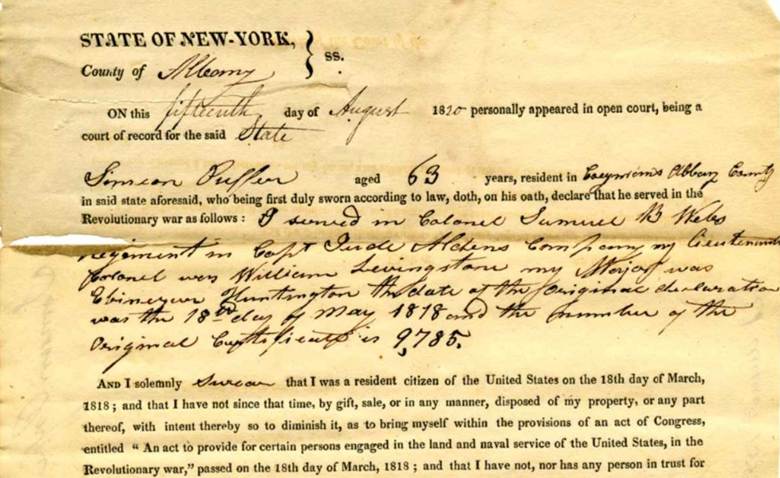 STATE OF NEW-YORK, } ss.
County of Albany
ON this fifteenth day of August 1820 personally appeared in open court, being a
court of record for the said State
Simeon Puffer aged 63 years, resident in Coeymans Albany County
in said state aforesaid, who being first duly sworn according to law, doth, on his oath, declare that he served in the
Revolutionary war as follows : I served in Colonel Samuel B Webs
Regiment in Capt Jude Aldens Company my lieutenant
Colonel was William Levingston my Major was
Ebinezer Huntington the date of the Original declaration
was the 18th day of May 1818 and the number of the
Original Certificate is 9,785.
AND I solemnly Swear that I was a resident citizen of the United States on the 18th day of March,
1818 ; and that I have not since that time, by gift, sale, or in any manner, disposed of my property, or any part
thereof, with intent thereby so to diminish it, as to bring myself within the provisions of an act of Congress,
entitled " An act to provide for certain persons engaged in the land and naval service of the United States, in the
Revolutionary war," passed on the 18th day of March, 1818 ; and that I have not, nor has any person in trust for